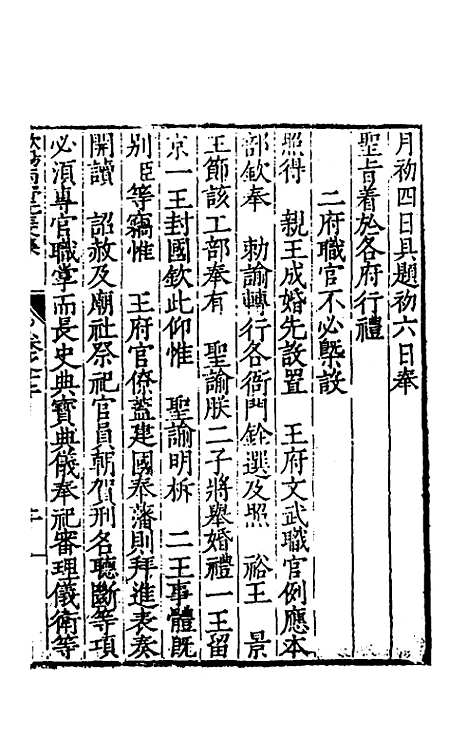 月初四日具題初六日奉
聖旨着於各府行禮
二府職官不必槩設
照得　親王成婚先設置　王府文武職官例應本
部欽奉　勅諭轉行各衙門銓選及照　裕王　景
王節該工部奉有　聖諭朕二子將舉婚禮一王留
京一王封國欽此仰惟　聖諭明柝　二王事體既
别臣等竊惟　王府官僚蓋建國奉藩則拜進表奏
開讀　詔赦及廟社祭祀官員朝賀刑名聽斷等項
必須專官職掌而長史典寶典儀奉祀審理儀衛等